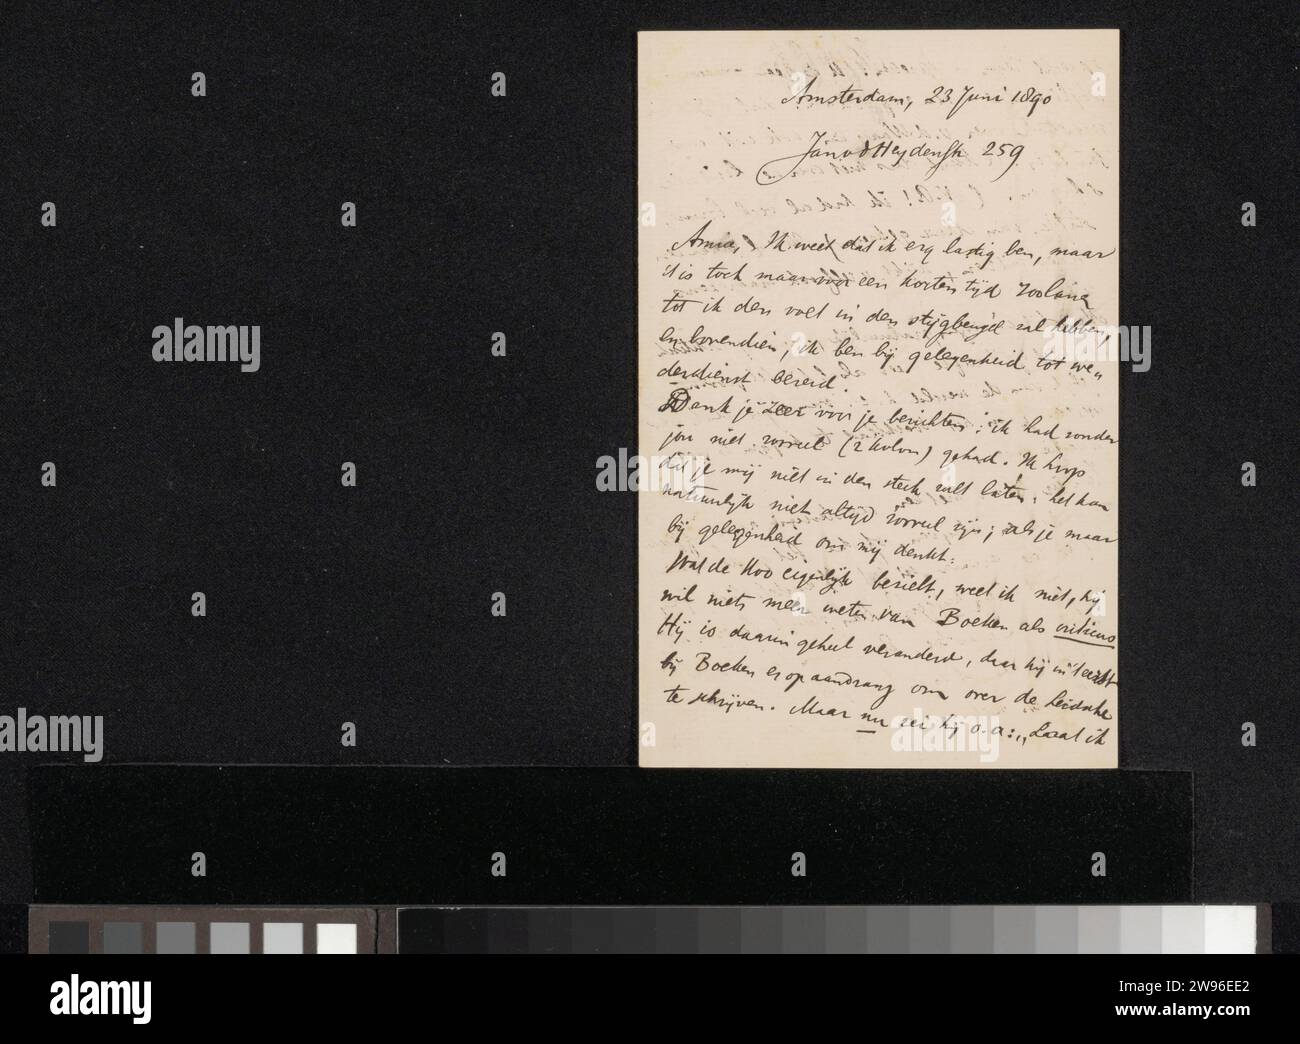 Amsterdam, 23 Juni 1890
Jan v d Heydenstr 259
Anna, Ik weet dat ik erg lastig ben, maar
't is toch maar voor een korten tijd zoolang
tot ik den voet in den stijgbeugel zal hebben,
en bovendien, ik ben bij gelegenheid tot we„
derdienst bereid.
Dank je zeer voor je berichten; ik had zonder
jou niet zooveel (2 kolom) gehad. Ik hoop
dat je mij niet in den steek zult laten: het kan
natuurlijk niet altijd zooveel zijn; als je maar
bij gelegenheid om mij denkt.
Wat de Koo eigenlijk bezielt, weet ik niet, hij
wil niets meer weten van Boeken als criticus
Hij is daarin geheel veranderd, daar hij in 't eerst
bij Boeken er op aandrang om over de
te schrijven. Maar nu zei hij o.a.: „Laat ik
alamy
Image ID: 2W96EE2
www.alamy.com